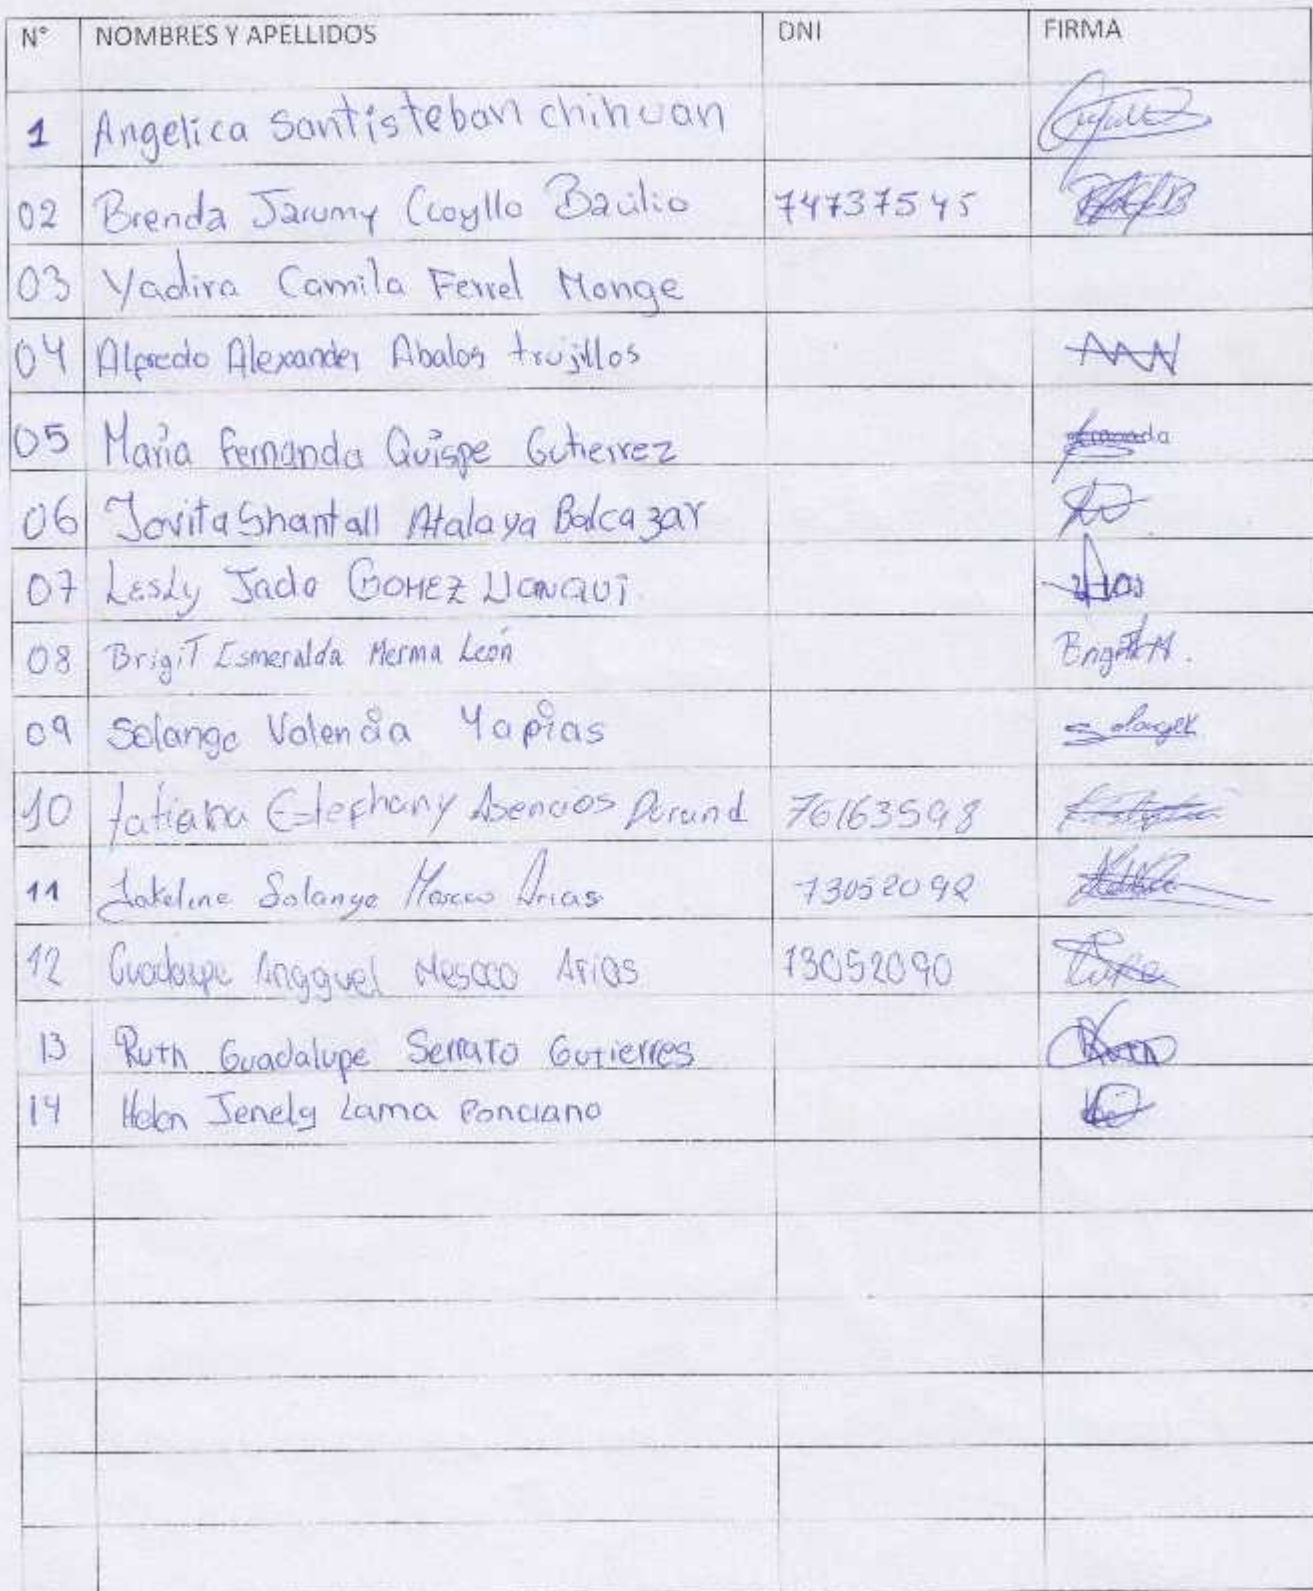 N° NOMBRES Y APELLIDOS DNI FIRMA
1 Angelica Santisteban chihuan
02 Brenda Jarumy Ccoyllo Baulio 74737545
03 Yadira Camila Ferrel Monge
04 Alfredo Alexander Abalos trujillos
05 Maria Fernanda Quispe Gutierrez
06 Jovita Shantall Atalaya Balcazar
07 Lesly Jade GOMEZ
08 Brigit Esmeralda Merma León
09 Solange Valencia Yapias
10 Tatiana Estephany Asencios Durand 76163598
11 Jakeline Solange Arias 73052092
12 Guadalupe Angguel Mescco Arias 73052090
13 Ruth Guadalupe Serrato Gutierres
14 Helen Jenely Lama Ponciano